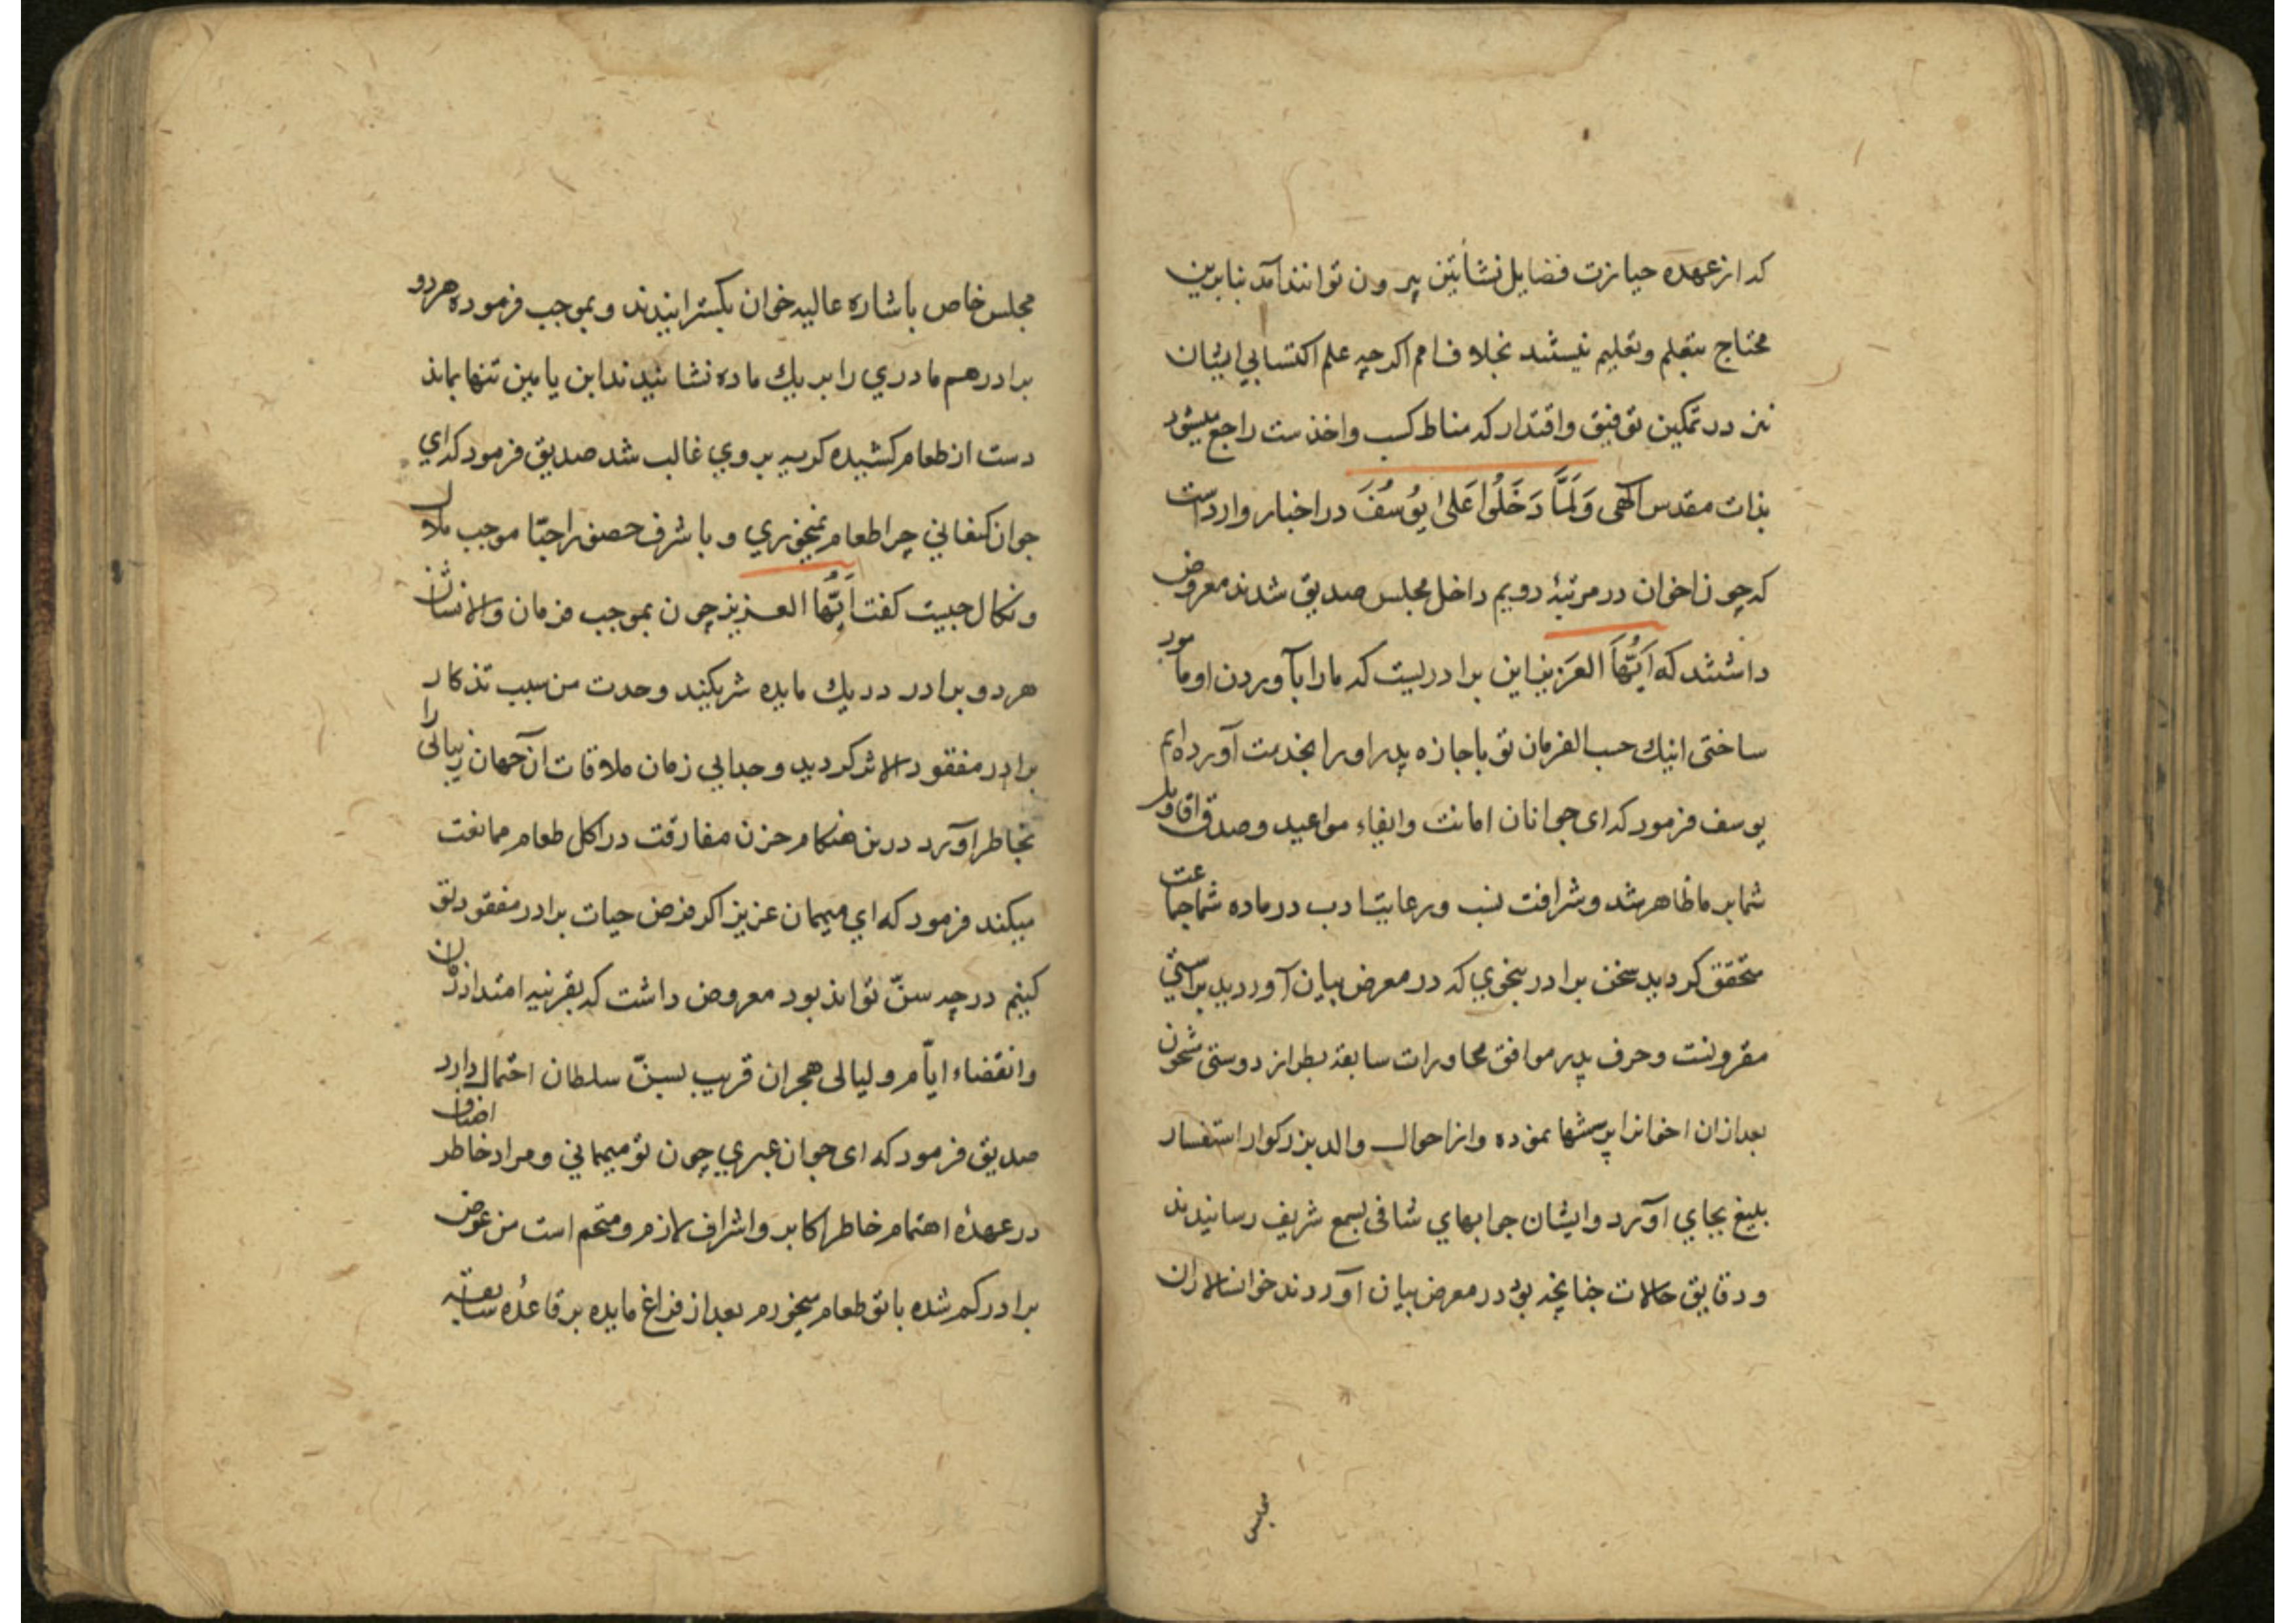 که از عهده حیازت فضایل نشأتین بیرون توانند آمد بنابرین
محتاج بتعلم وتعلیم نیستند بخلاف امم اکرچه علم اکتسابی ایشان
نیز در تمکین توفیق واقتدار که مناط کسب واخذست راجع میشود
بذات مقدس الهی وَلَمَّا دَخَلُوا عَلیٰ یُوسُفَ در اخبار واردست
که چون اخوان در مرتبهٔ دویم داخل مجلس صدیق شدند معروض
داشتند که اَیُّهَا العَزِیز این برادریست که ما را بآوردن او مأمور
ساختی اینك حسب الفرمان تو باجازه پدر او را بخدمت آورده ایم
یوسف فرمود که ای جوانان امانت وایفاء مواعید وصدق اقاویل
شما بر ما ظاهر شد وشرافت نسب ورعایت ادب در ماده شما جماعت
متحقق کردید سخن برادر بنحوي که در معرض بیان آوردید براستی
مقرونست وحرف پدر موافق محاورات سابقه بطراز دوستی مشحون
بعد ازان اخوانرا پرسشها نموده واز احوال والد بزرکوار استفسار
بلیغ بجاي آورد وایشان جوابهاي شافی بسمع شریف رسانیدند
ودقایق حالات چنانچه بود در معرض بیان آوردند خوانسالاران
مجلس
مجلس خاص باشاره عالیه خوان بکسترانیدند وبموجب فرموده هر دو
برادر هم مادري را بر یك ماده نشانیدند ابن یامین تنها بماند
دست از طعام کشیده کریه بر وي غالب شد صدیق فرمود که اي
جوان کنعاني چرا طعام نمیخوري وبا شرف حضور احبّا موجب ملال
ونکال چیست کفت اَیُّهَا العزیز چون بموجب فرمان والانشان
هر دو برادر در یك مایده شریکند وحدت من سبب تذکار
برادر مفقود الاثر کردید وجدایي زمان ملاقات آن جهان زیبائی را
بخاطر آورد درین هنکام حزن مفارقت در اکل طعام ممانعت
میکند فرمود که اي میهمان عزیز اکر فرض حیات برادر مفقود تو
کنیم در چه سنّ تواند بود معروض داشت که بقرینه امتداد زمان
وانقضاء ایّام ولیالی هجران قریب بسنّ سلطان احتمال دارد
صدیق فرمود که ای جوان عبري چون تو میهماني ومراد خاطر اضیاف
در عهدهٔ اهتمام خاطر اکابر واشراف لازم ومتحتم است من عوض
برادر کم شده با تو طعام میخورم بعد از فراغ مایده بر قاعدهٔ سابقه